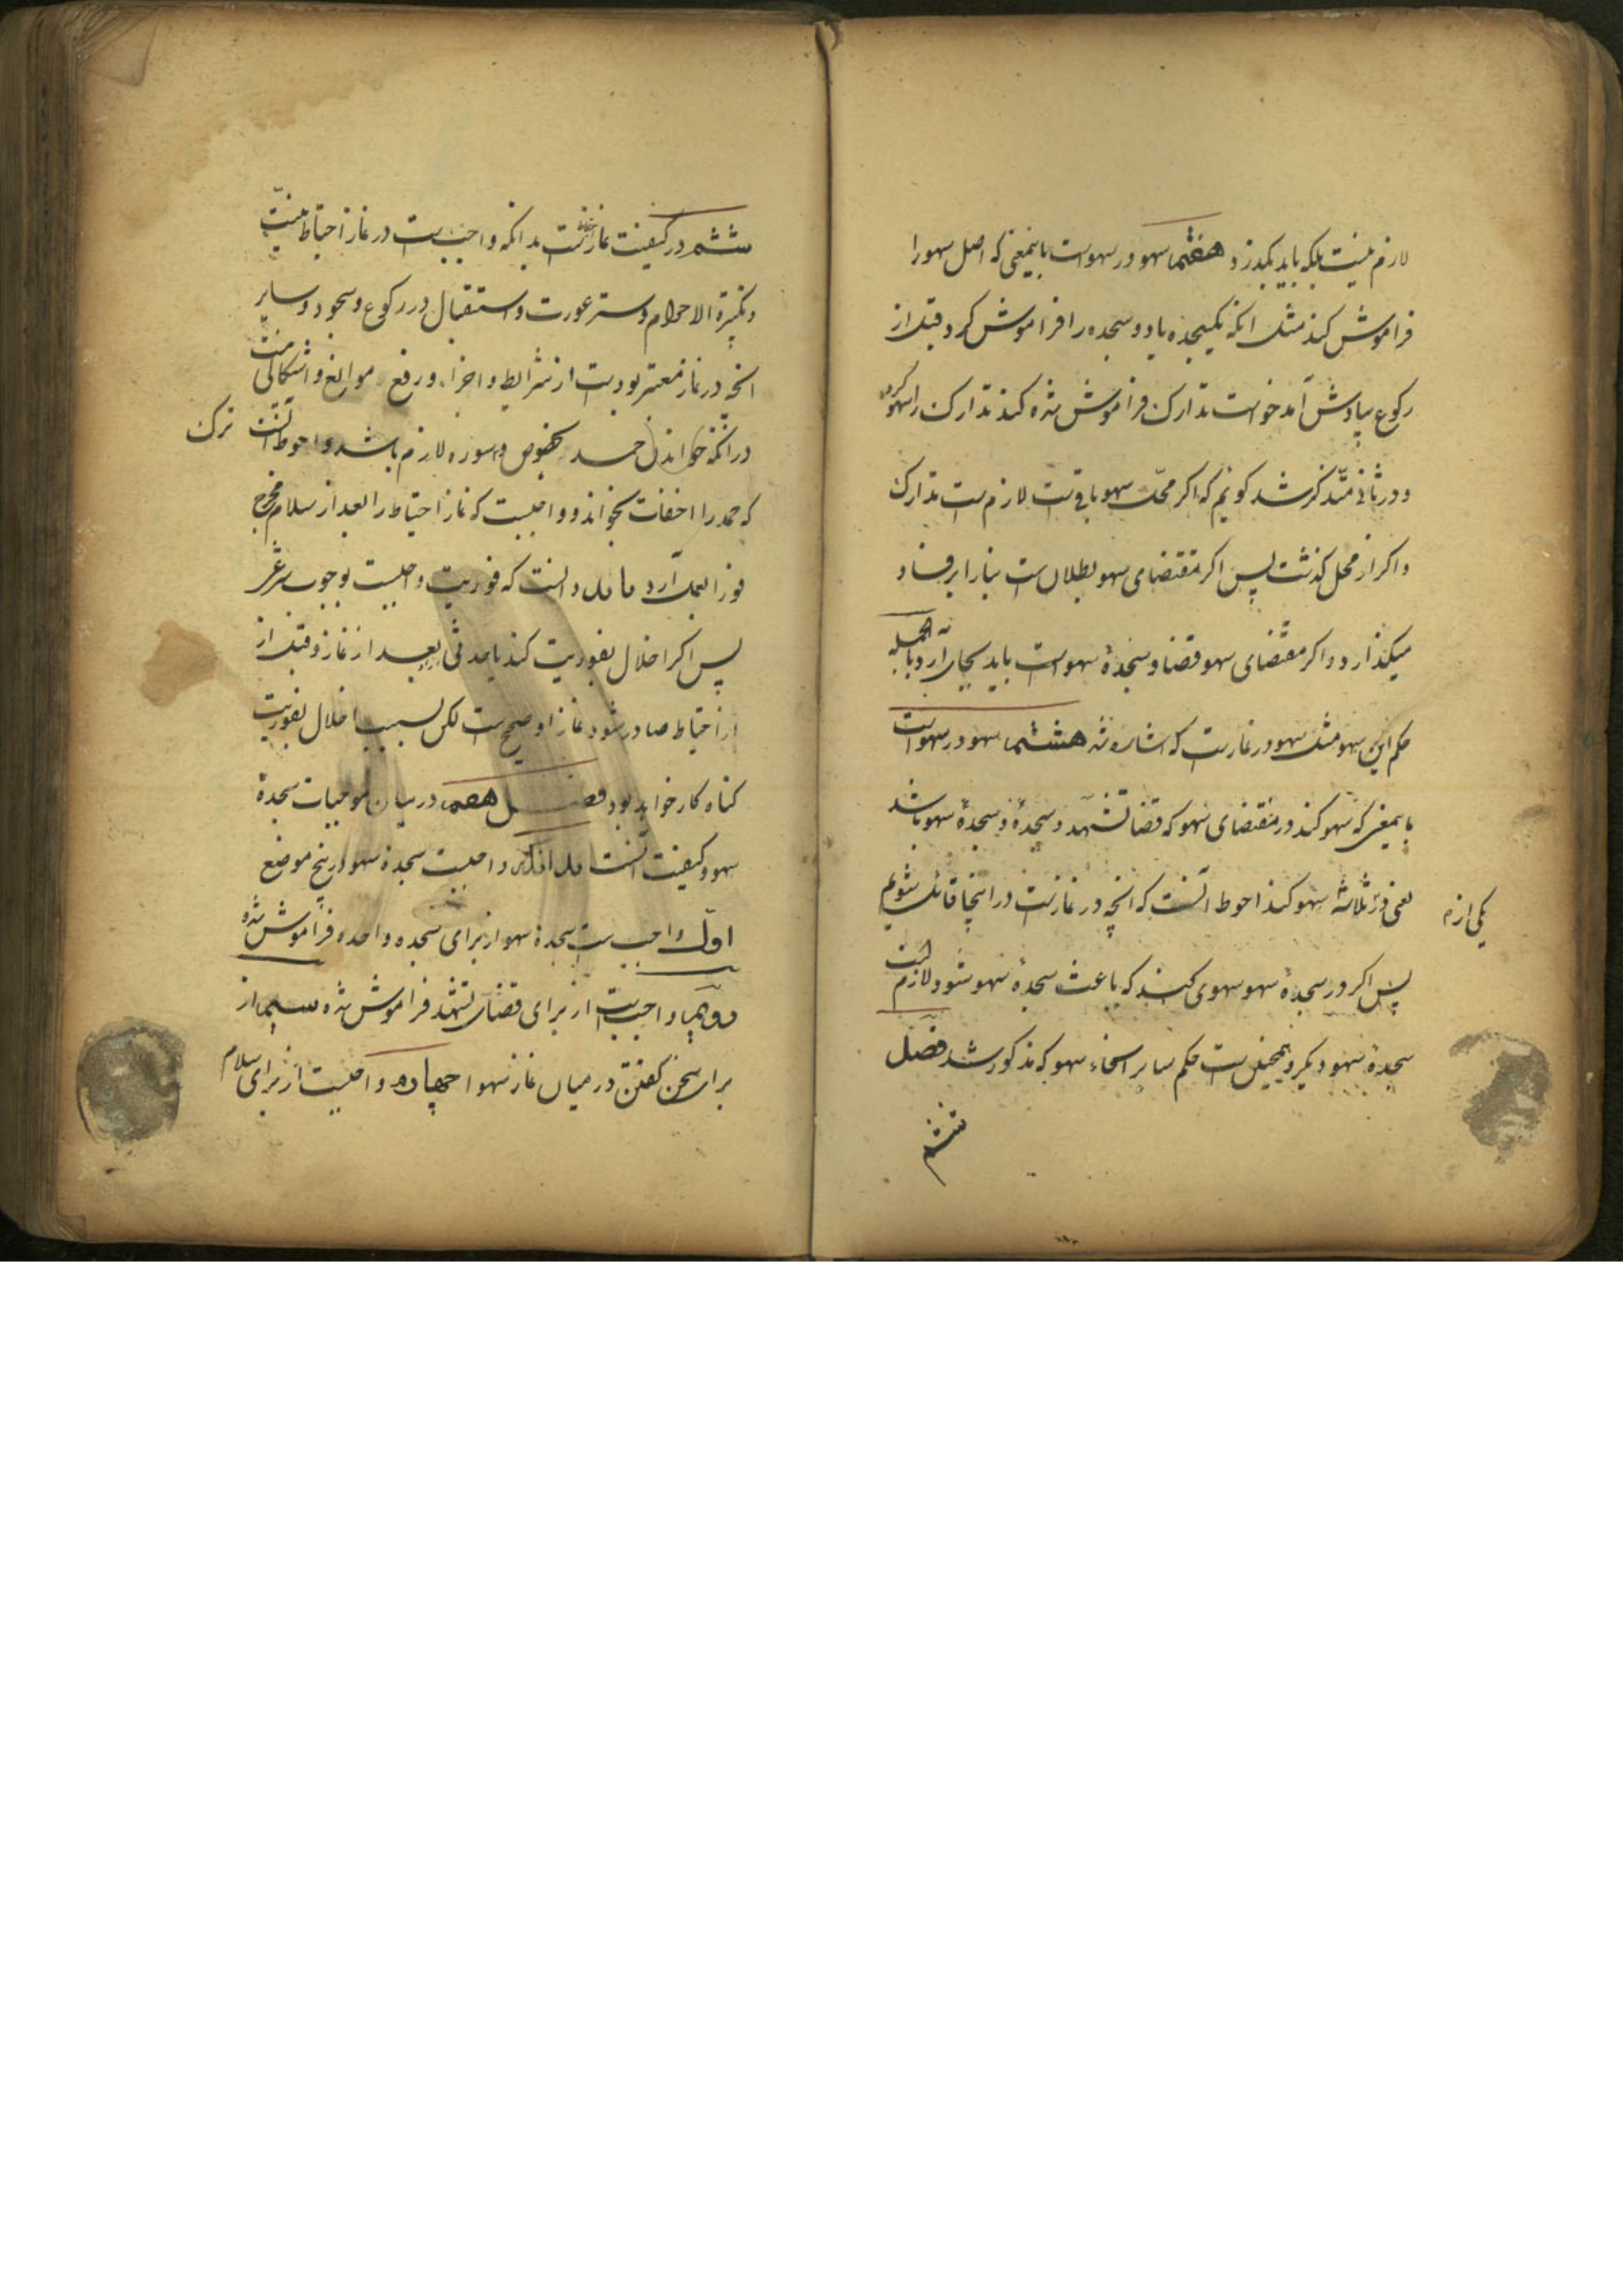 لازم نیست بلکه باید بگذرد هفتم سهو در سهو است باینمعنی که اصل سهو را
فراموش کند مثل انکه یکسجده یا دو سجده را فراموش کرد و قبل از
رکوع بیادش آمد خواست تدارک فراموش شده کند تدارک را سهو کرد
و در ثانی متذکر شد کوئیم که اکر محل سهو باقی است لازم است تدارک
و اکر از محل کذشت پس اکر مقتضای سهو بطلان است بنا را بر فساد
میکذارد و اکر مقتضای سهو قضا و سجدهٔ سهو است باید بجای آرد و بالجمله
حکم این سهو مثل سهو در نماز است که اشاره شد هشتم سهو در سهو است
باینمعنی که سهو کند در مقتضای سهو که قضا تشهد و سجدهٔ و سجدهٔ سهو باشد
یعنی در ثلاثه سهو کند احوط آنست که انچه در نماز است در اینجا قائل شویم
یکی از
پس اکر در سجدهٔ سهو سهوی کند که باعث سجدهٔ سهو شود لازم است
سجدهٔ سهو دیکر و همچنین است حکم سایر انحاء سهو که مذکور شد فصل
ششم
ششم در کیفیت نماز احتیاط است بدانکه واجب است در نماز احتیاط نیت
و تکبیرة الاحرام و ستر عورت و استقبال و رکوع و سجود و سایر
انچه در نماز معتبر بوده است از شرایط و اجزاء و رفع موانع و اشکالی نیست
در انکه خواندن حمد بخصوص و سوره لازم باشد و احوط آنست ترک
که حمد را اخفات بخواند و واجبست که نماز احتیاط را بعد از سلام مخرج
فورا بعمل آرد و دانست که فوریت واجبست بوجوب شرعی
پس اکر اخلال بفوریت کند یا حدثی بعد از نماز و قبل از
احتیاط صادر شود نماز او صحیح است لکن بسبب اخلال بفوریت
کناه کار خواهد بود فصل هفتم در بیان موجبات سجدهٔ
سهو و کیفیت آنست بدانکه واجبست سجدهٔ سهو در پنج موضع
اول واجب است سجدهٔ سهو از برای سجده واحده فراموش شده
دویم واجب است از برای قضای تشهد فراموش شده سیم از
برای سخن کفتن در میان نماز سهوا چهارم واجبست از برای سلام